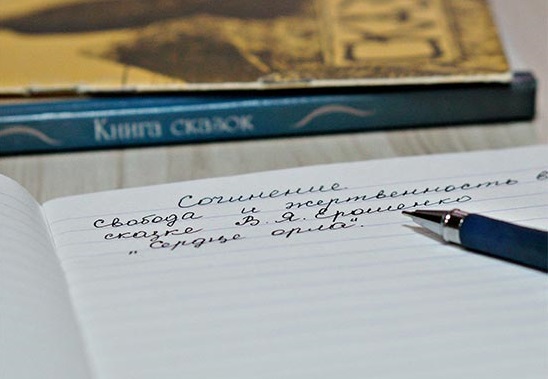 Книга сказок
Сочинение.
свобода и жертвенность в
сказке В. Я. Ерошенко
"Сердце орла".